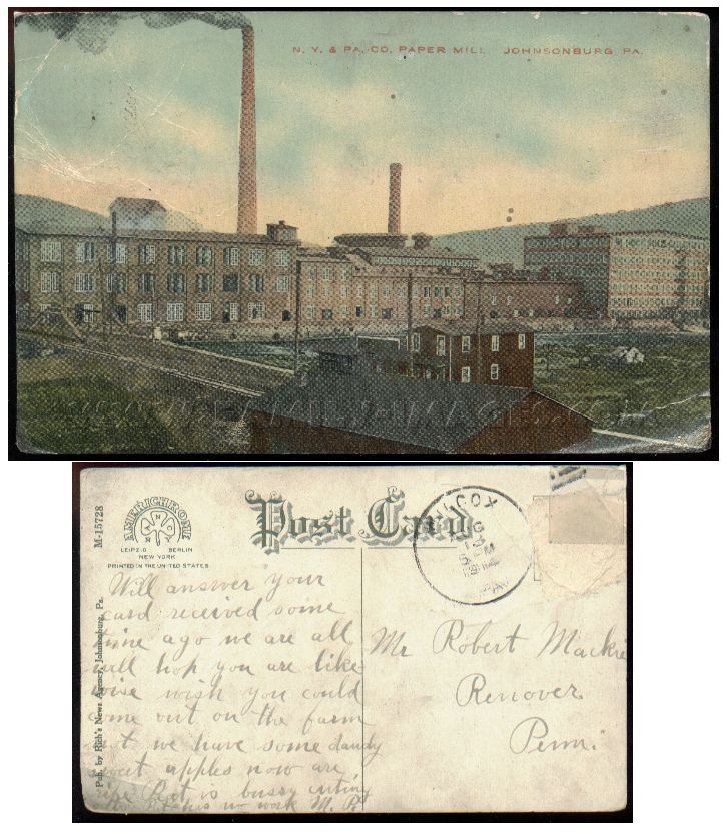 N. Y. & PA. CO. PAPER MILL JOHNSONBURG PA.
Post Card
AMERICHROME
LEIPZIG BERLIN
NEW YORK
PRINTED IN THE UNITED STATES
M-15728
Pub. by Rich's News Agency, Johnsonburg, Pa.
Will answer your
card received some
time ago we are all
well hop you are like
wise wish you could
come out on the farm
we have some dandy
sweet apples now are
ripe is bussy cutting
no work M. P.
Mr Robert Mackie
Renover
Penn.